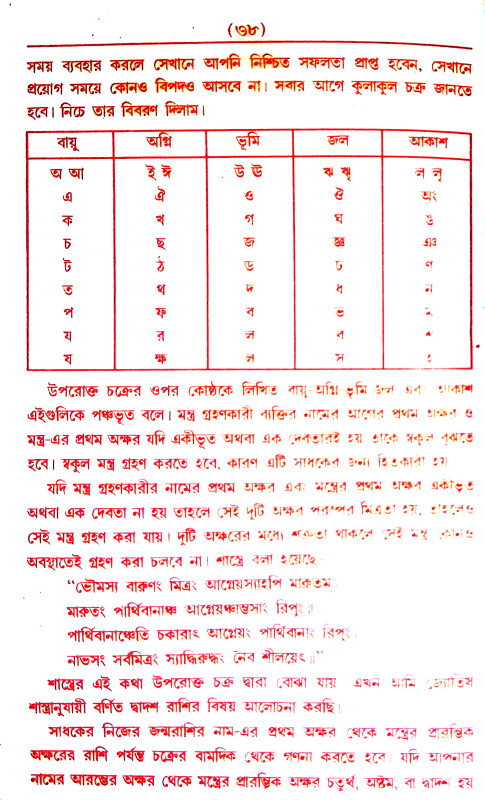 (৩৮)
সময় ব্যবহার করলে সেখানে আপনি নিশ্চিত সফলতা প্রাপ্ত হবেন, সেখানে
প্রয়োগ সময়ে কোনও বিপদও আসবে না। সবার আগে কুলাকুল চক্র জানতে
হবে। নিচে তার বিবরণ দিলাম।
বায়ু অগ্নি ভূমি জল আকাশ
অ আ ই ঈ উ ঊ ঋ ৠ ল লৃ
এ ঐ ও ঔ অং
ক খ গ ঘ ঙ
চ ছ জ ঝ ঞ
ট ঠ ড ঢ ণ
ত থ দ ধ ন
প ফ ব ভ ম
য র ল ব
ষ ক্ষ ল স
উপরোক্ত চক্রের ওপর কোষ্ঠকে লিখিত বায়ু-অগ্নি ভূমি জল এবং আকাশ
এইগুলিকে পঞ্চভূত বলে। মন্ত্র গ্রহণকারী ব্যক্তির নামের আগের প্রথম অক্ষর ও
মন্ত্র-এর প্রথম অক্ষর যদি একীভূত অথবা এক দেবতারই হয় তাকে স্বকুল বুঝতে
হবে। স্বকুল মন্ত্র গ্রহণ করতে হবে, কারণ এটি সাধকের জন্য হিতকারী হয়
যদি মন্ত্র গ্রহণকারীর নামের প্রথম অক্ষর এবং মন্ত্রের প্রথম অক্ষর একীভূত
অথবা এক দেবতা না হয় তাহলে সেই দুটি অক্ষর পরস্পর মিত্রতা হয়, তাহলেও
সেই মন্ত্র গ্রহণ করা যায়। দুটি অক্ষরের মধ্যে শত্রুতা থাকলে সেই মন্ত্র কোনও
অবস্থাতেই গ্রহণ করা চলবে না। শাস্ত্রে বলা হয়েছে—
“ভৌমস্য বারুণং মিত্রং আগ্নেয়স্যাহপি মারুতম
মারুতং পার্থিবানাঞ্চ আগ্নেয়ঞ্চাম্ভসাং রিপুঃ॥
পার্থিবানাঞ্চেতি চকারাৎ আগ্নেয়ং পার্থিবানাং রিপুঃ।
নাভসং সর্বমিত্রং স্যাদ্ধিরুদ্ধং নৈব শীলয়েৎ॥”
শাস্ত্রের এই কথা উপরোক্ত চক্র দ্বারা বোঝা যায় এখন আমি জ্যোতিষ
শাস্ত্রানুযায়ী বর্ণিত দ্বাদশ রাশির বিষয় আলোচনা করছি।
সাধকের নিজের জন্মরাশির নাম-এর প্রথম অক্ষর থেকে মন্ত্রের প্রারম্ভিক
অক্ষরের রাশি পর্যন্ত চক্রের বামদিক থেকে গণনা করতে হবে। যদি আপনার
নামের আরম্ভের অক্ষর থেকে মন্ত্রের প্রারম্ভিক অক্ষর চতুর্থ, অষ্টম, বা দ্বাদশ হয়